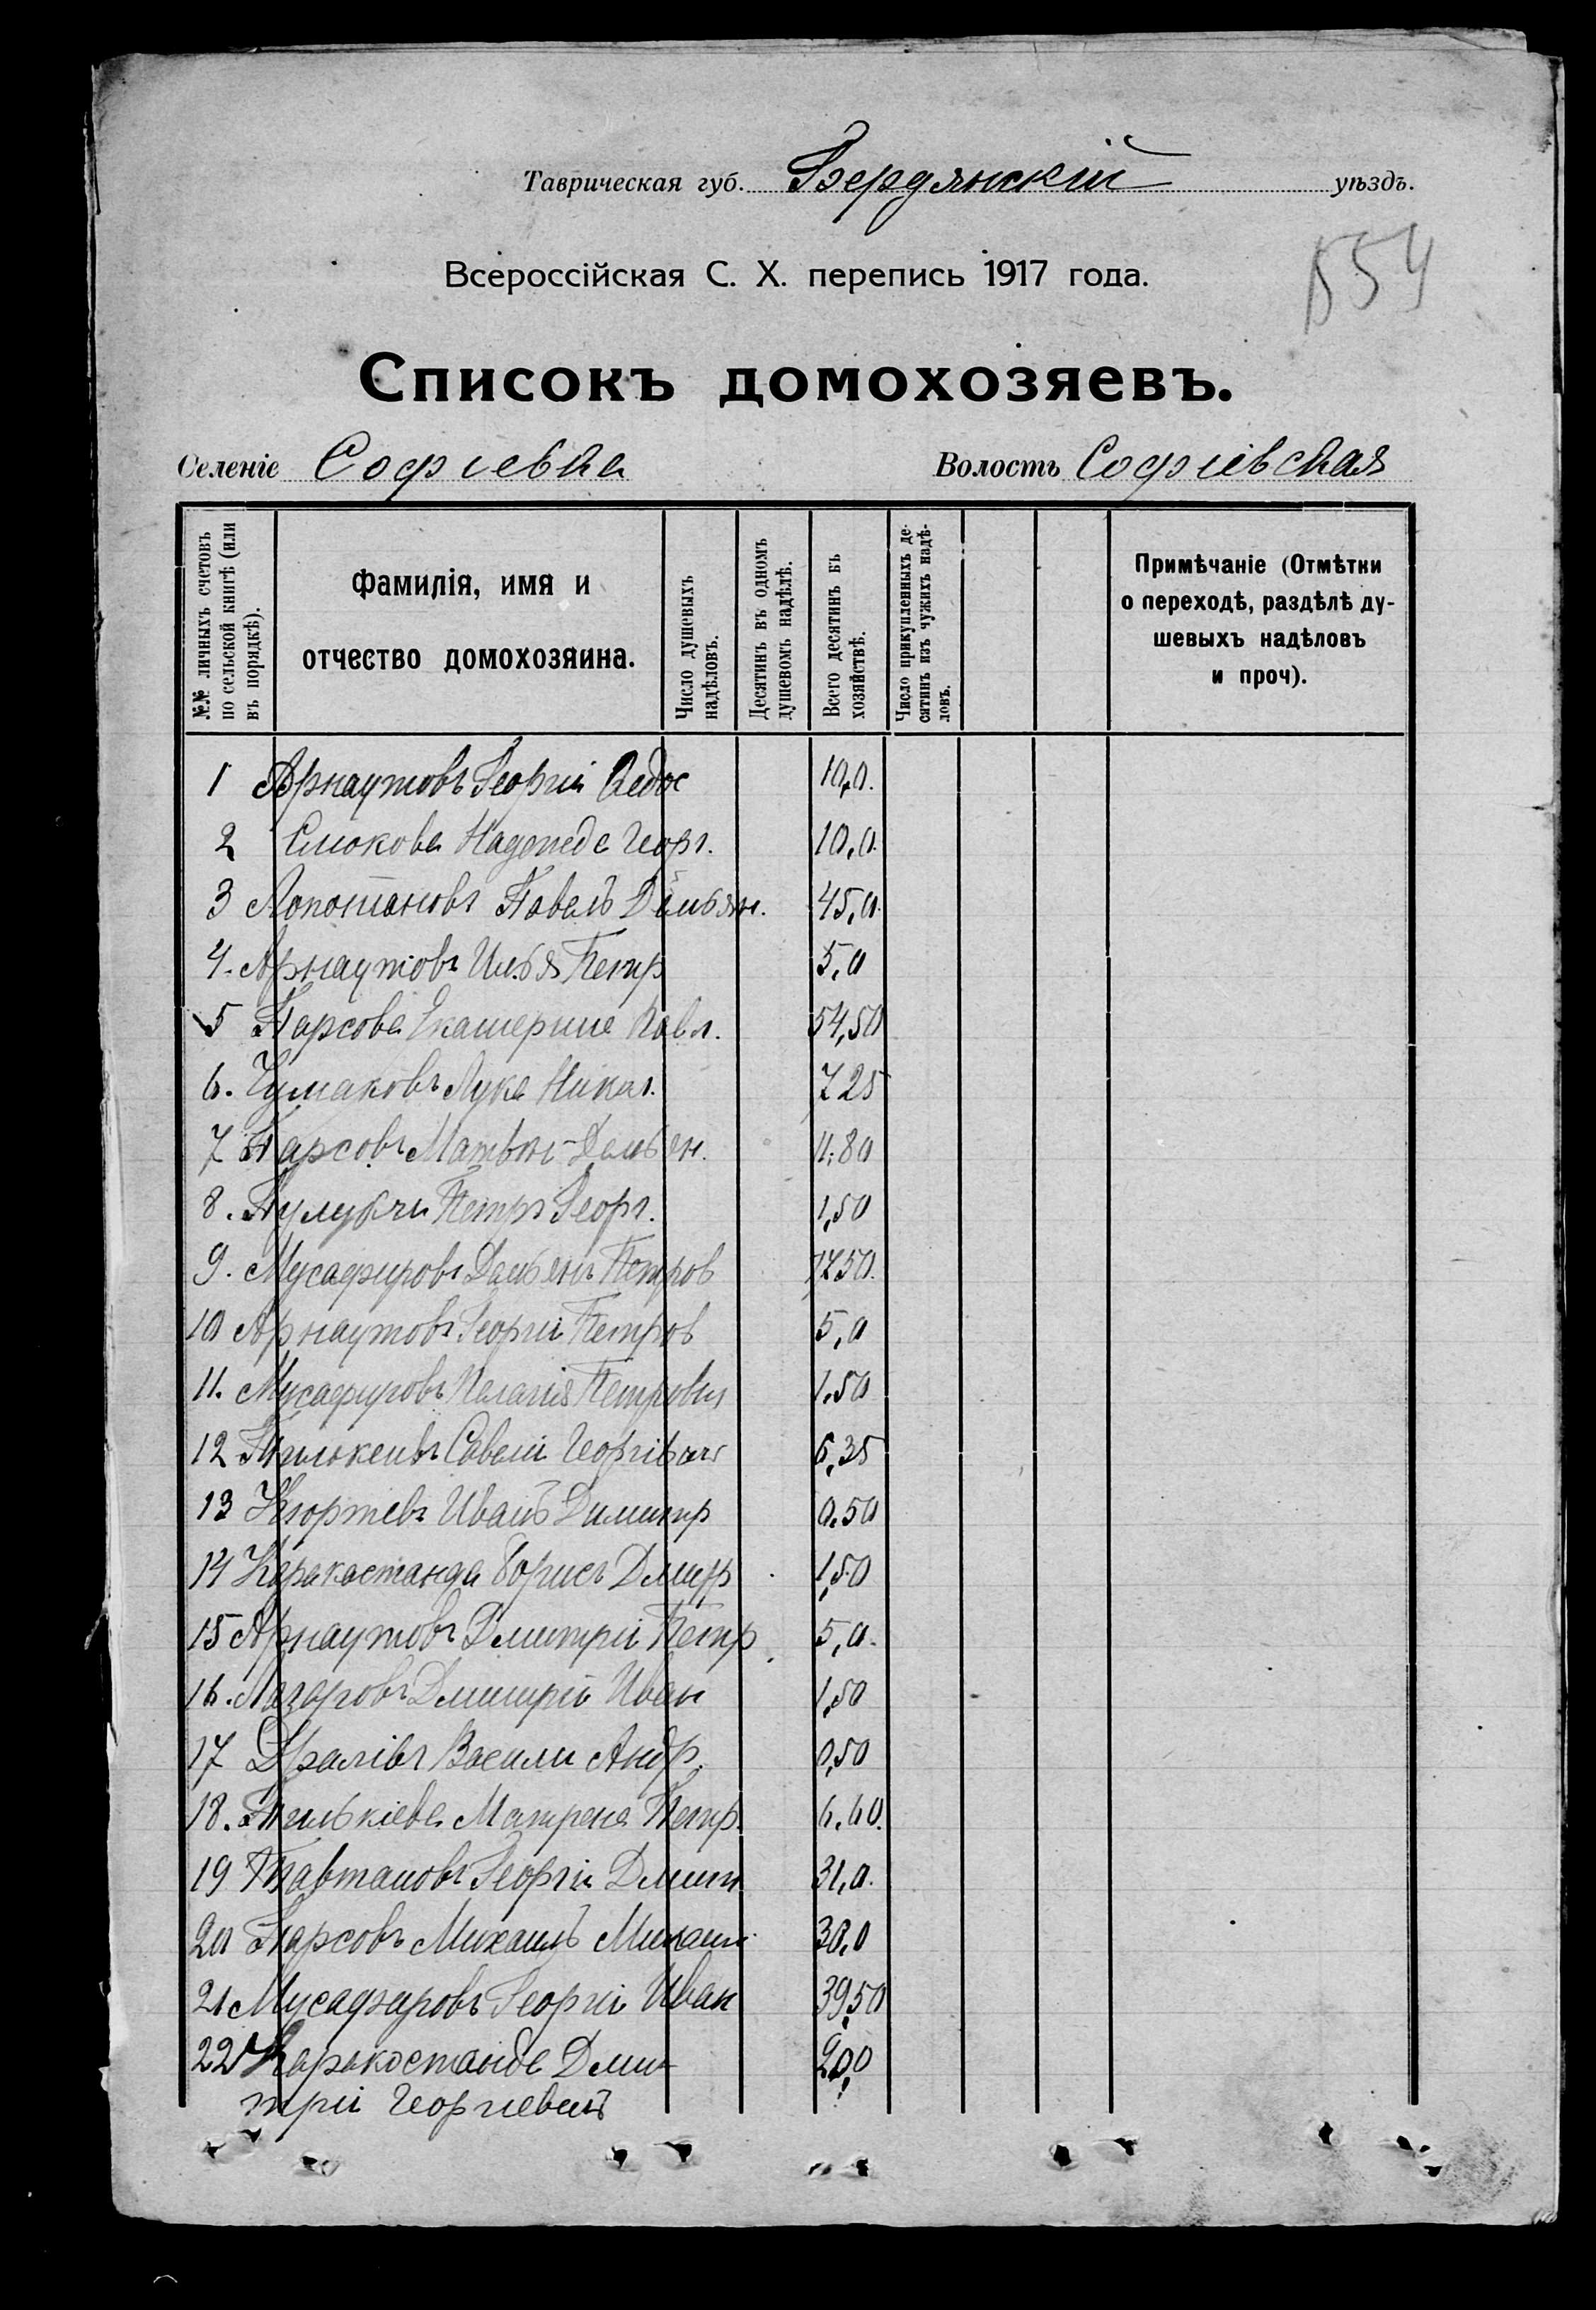 Таврическая губ. Бердянскій уѣздъ.
554
Всероссійская С. Х. перепись 1917 года.
Списокъ домохозяевъ.
Селеніе Софиевка Волость Софиевская
№№ личныхъ счетовъ по сельской книгѣ (или въ порядкѣ).
Фамилія, имя и отчество домохозяина.
Число душевыхъ надѣловъ.
Десятинъ въ одномъ душевомъ надѣлѣ.
Всего десятинъ въ хозяйствѣ.
Число прикупленныхъ десятинъ изъ чужихъ надѣловъ.
Примѣчаніе (Отмѣтки о переходѣ, раздѣлѣ душевыхъ надѣловъ и проч).
1 Арнаутовъ Георгій 10,0.
2 Надежда Георг. 10,0.
3 Павелъ Демьян. 45,0.
4. Арнаутовъ Илья Петр 5,0
5 Парсова Екатерина Павл. 54,50
6. Чумаковъ Лука Никол. 7 25
7 Парсовъ Матвѣй Демьян. 11,80
8. Петръ Георг. 1,50
9. Мусафировъ Демьянъ Петров 17 50.
10 Арнаутовъ Георги Петров 5,0
11. Мусафировъ Пелагія Петровна 1,50
12 Савели Георгіевич 6,35
13 Кюржевъ Иванъ Димитр 0,50
14 Каракостанда Борисъ Дмитр 1,50
15 Арнаутовъ Дмитрій Петр 5,0.
16. Лазаровъ Дмитрій Иван 1,50
17 Васили Андр. 0,50
18. Матрена Петр. 6,60.
19 Тавтановъ Георгій Дмит 31,0.
20 Парсовъ Михаилъ Михаил. 38,0
21 Мусафировъ Георгій Иван 39,50
22 Каракостанда Дми-
трій Георгиевичъ 20,0